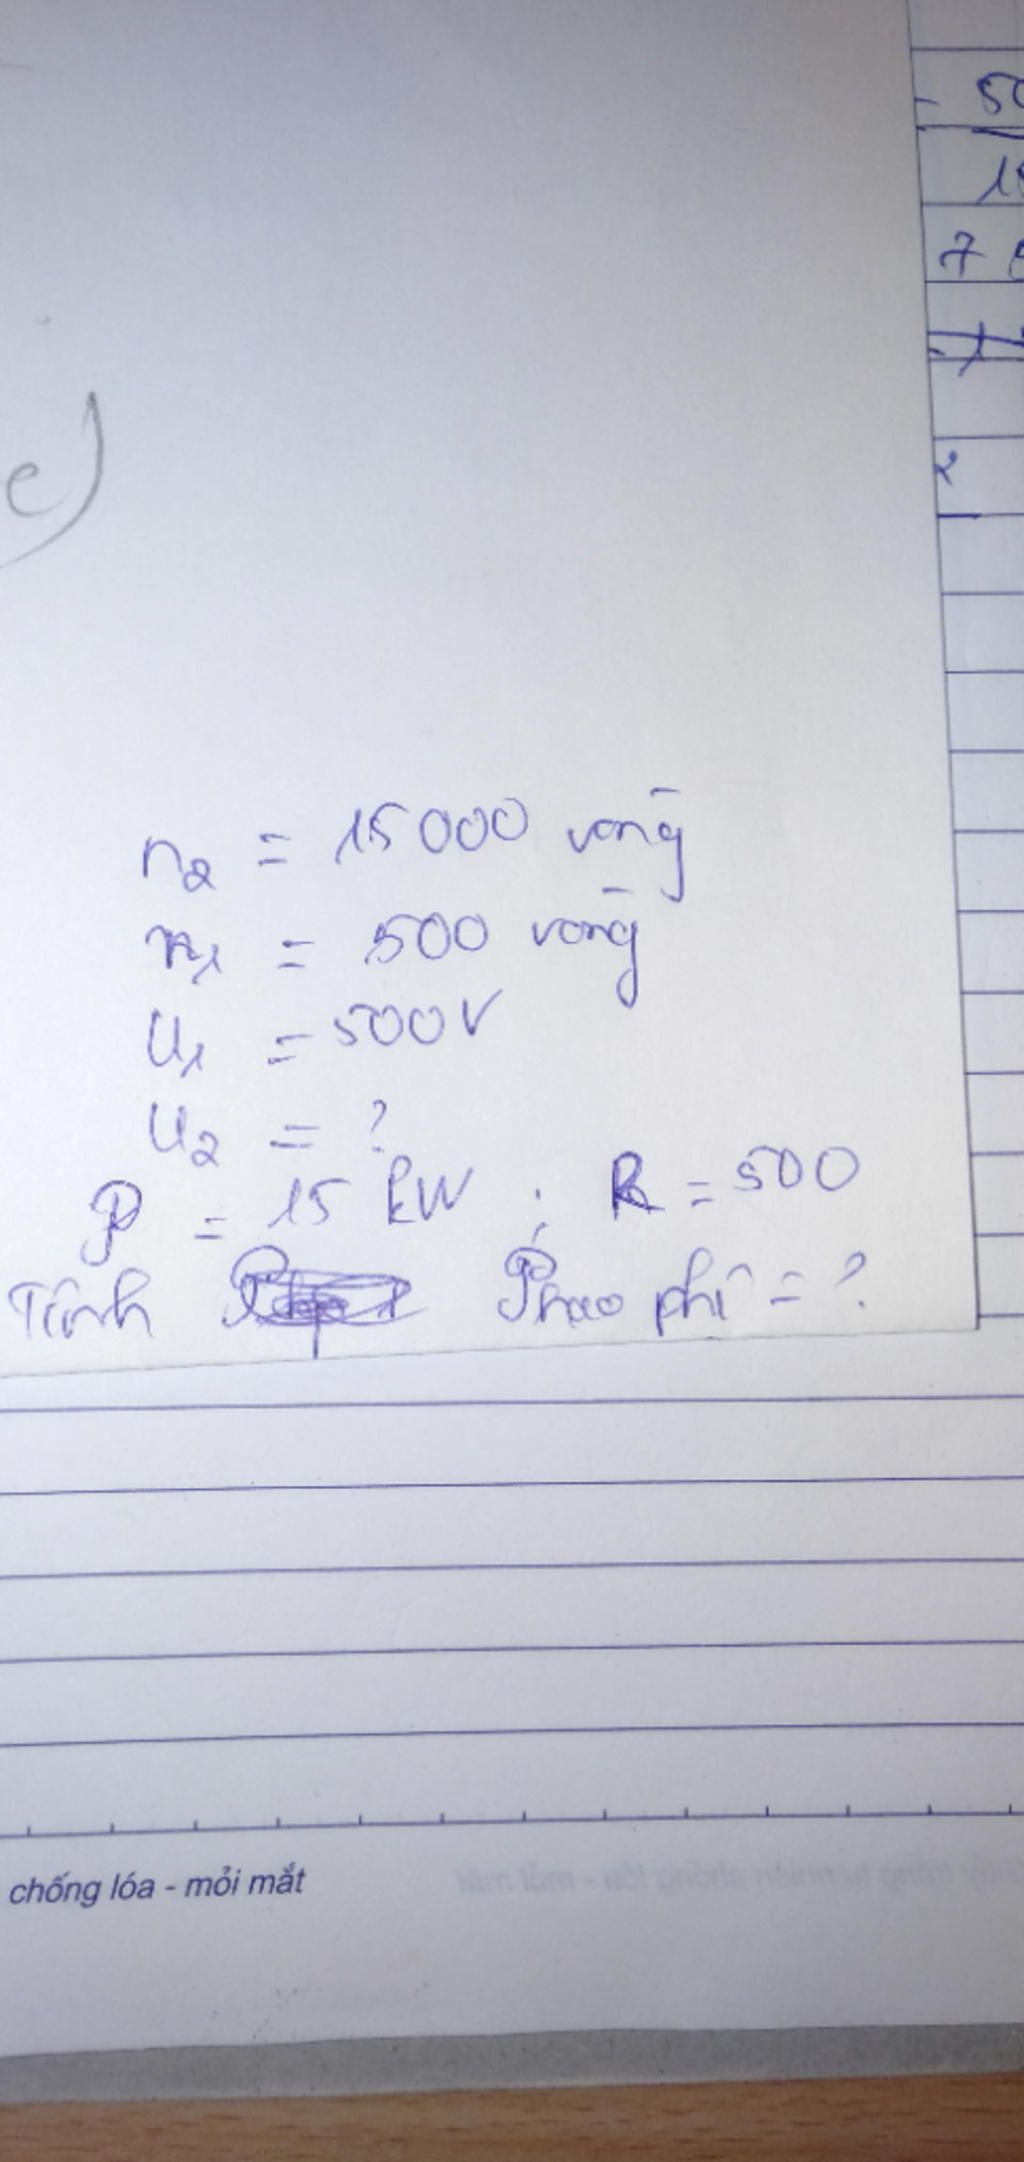 50
1
7
e)
2
n2 = 15000 vòng
n1 = 500 vòng
U1 = 500V
U2 = ?
P = 15 kW ; R = 500
Tính P hao phí = ?
chống lóa - mỏi mắt